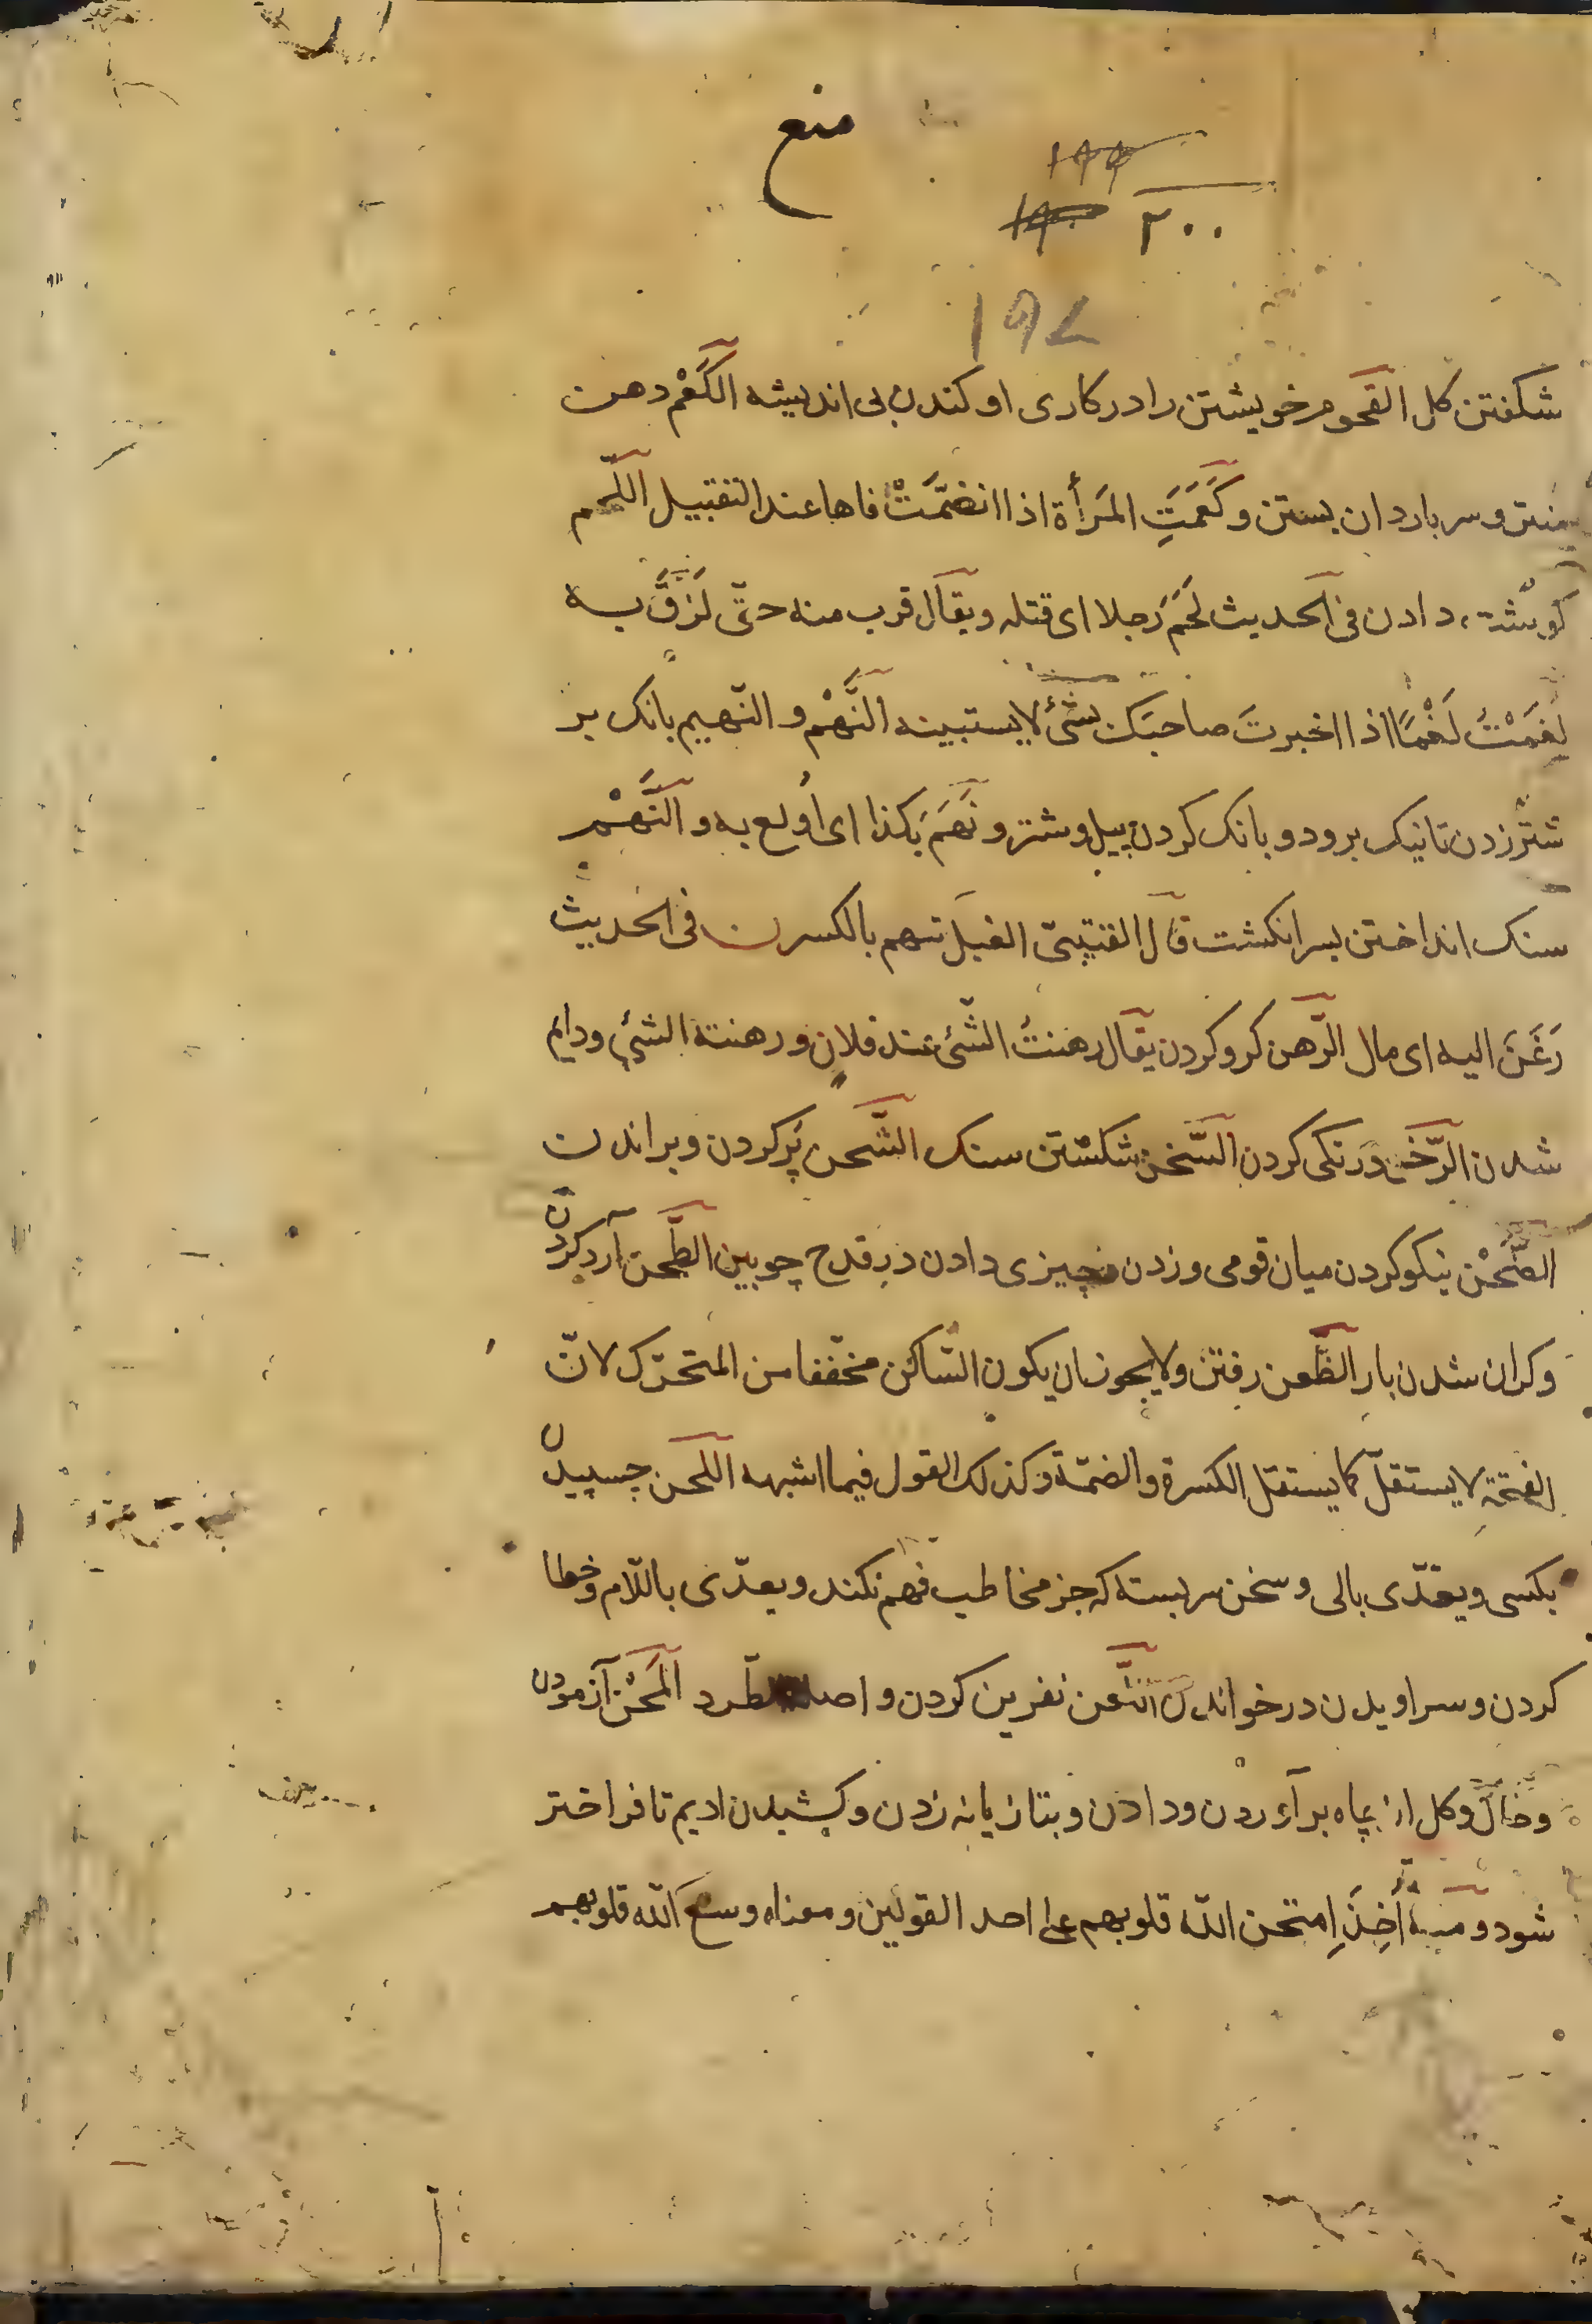 منع
١٩٩
١٩٠ ٢٠٠
١٩٧
شکفتن کل القحوم خویشتن را در کاری اوکندن بی اندیشه الکَعْم دهن
بستن و سر باردان بستن و کَعَمَتِ المَرأة اذا انضمَّتْ فاها عند التقبیل اللّحم
کوشت دادن فی الحدیث لَحَمَ رَجلا ای قتله ویقال قرب منه حتّی لَزِقَ به
لغَمْتُ لَغْمًا اذا اخبرتَ صاحبَک بشیٔ لایستبینه النَّهْم و النّهیم بانک بر
شتر زدن تا نیک برود و بانک کردن پیل و شتر و نَهَمَ بکذا ای اُولع به و النَّهْم
سنک انداختن بسر انکشت قال القتیبیّ الفیل تنهم بالکسر ن فی الحدیث
رَغَنَ الیه ای مال الرّهن کرو کردن یقال رهنتُ الشّئ عند فلان و رهنته الشئ ودایم
شدن الرّخن درنکی کردن السّخن شکستن سنک الشّحن پُر کردن وبراندن
الصَّحْن نیکو کردن میان قومی وزدن وچیزی دادن در قدح چوبین الطّحن آرد کردن
وکران شدن بار الظّعن رفتن ولایجوز ان یکون السّاکن مخفّفا من المتحرّک لانّ
الفتحة لایستقلّ کما یستقل الکسرة والضمّة وکذلک القول فیما اشبهه اللّحن چسپیدن
بکسی ویعدّی بالی وسخن سربسته که جز مخاطب فهم نکند ویعدّی باللّام وخطا
کردن وسراویدن در خواندن اللّعن نفرین کردن و اصله الطّرد المَحْن آزمودن
وخاک وکل از چاه برآوردن ودادن وبتازیانه زدن وکشیدن ادیم تا فراختر
شود ومنه اُخِذَ اِمتحن اللّه قلوبهم علی احد القولین ومعناه وسع اللّه قلوبهم